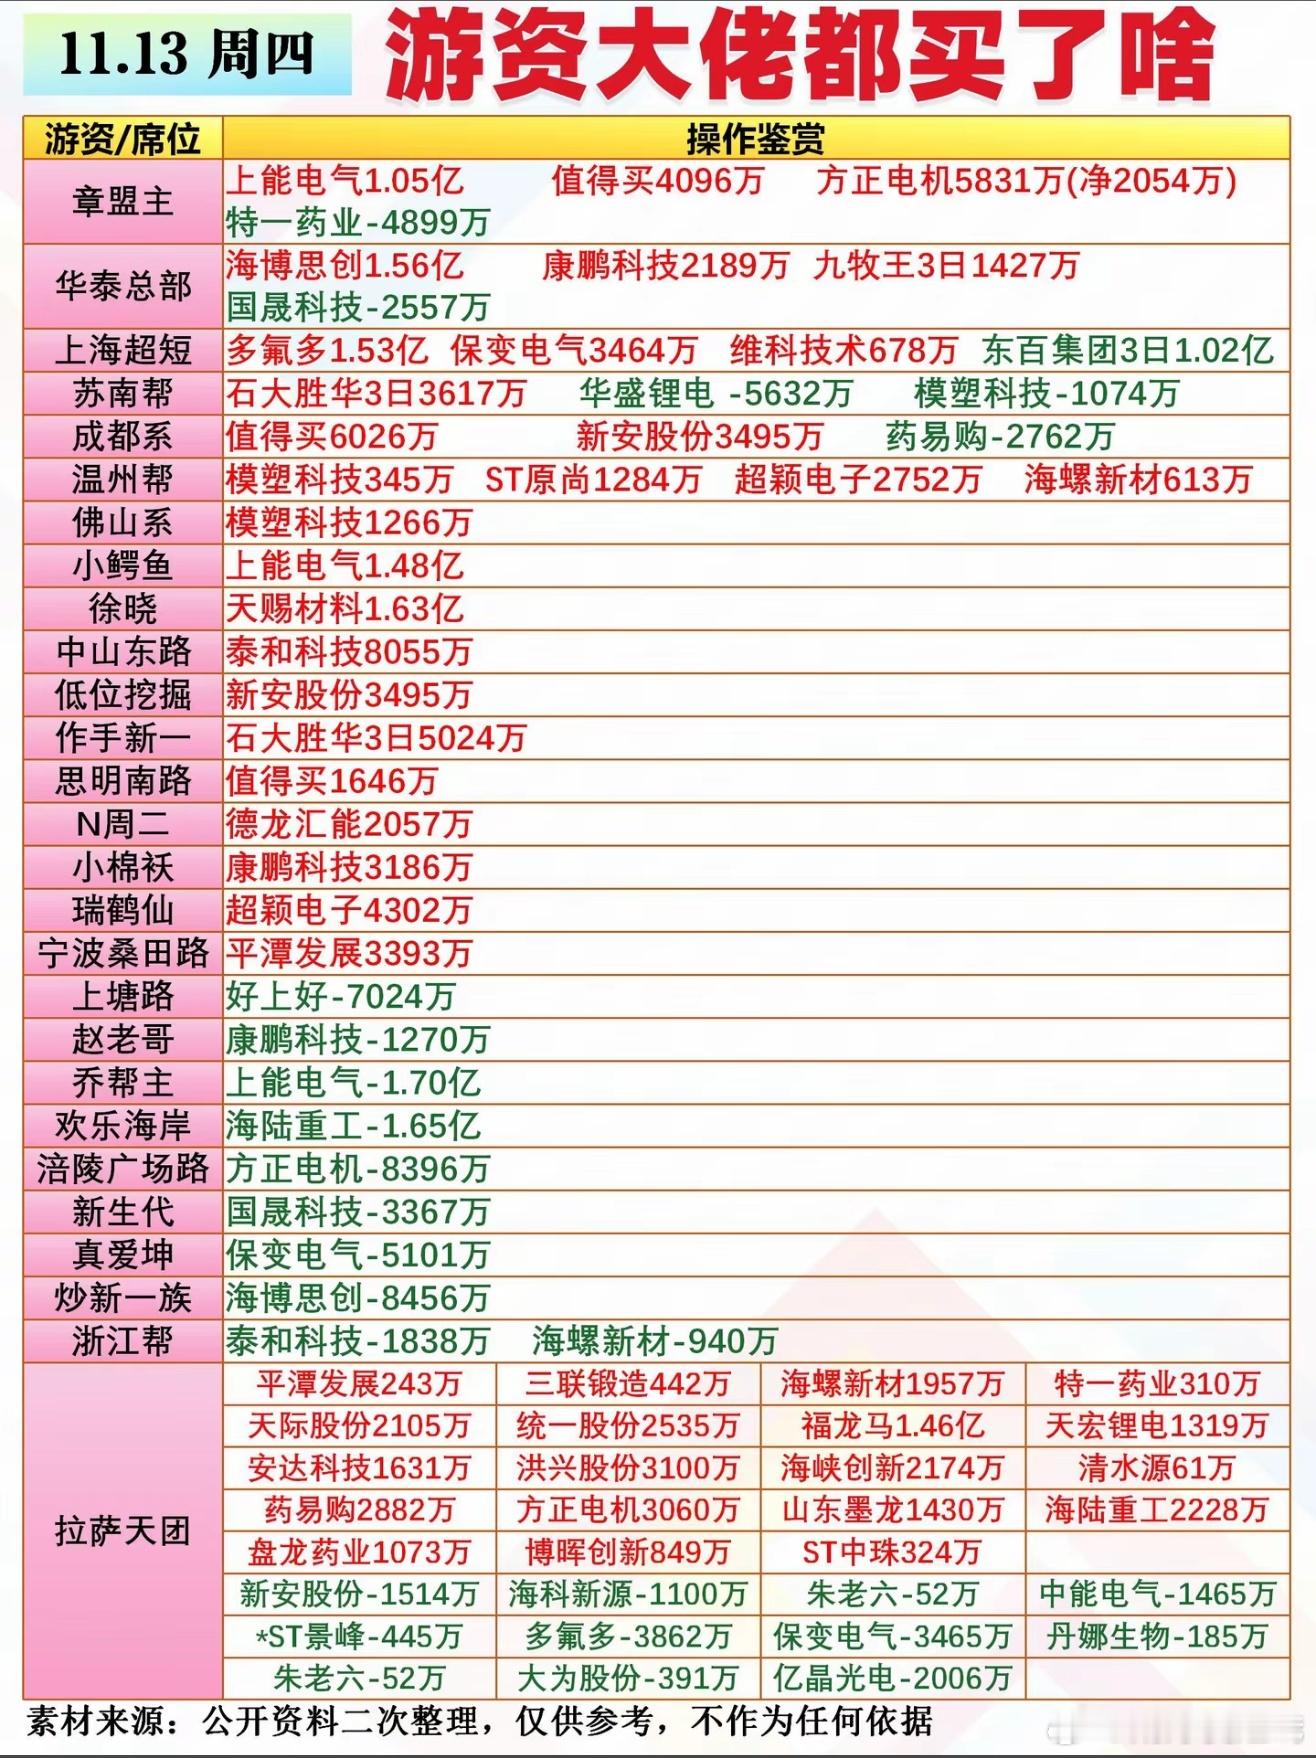 11.13 周四 游资大佬都买了啥
游资/席位 操作鉴赏
章盟主 上能电气1.05亿 值得买4096万 方正电机5831万(净2054万)
特一药业-4899万
华泰总部 海博思创1.56亿 康鹏科技2189万 九牧王3日1427万
国晟科技-2557万
上海超短 多氟多1.53亿 保变电气3464万 维科技术678万 东百集团3日1.02亿
苏南帮 石大胜华3日3617万 华盛锂电 -5632万 模塑科技-1074万
成都系 值得买6026万 新安股份3495万 药易购-2762万
温州帮 模塑科技345万 ST原尚1284万 超颖电子2752万 海螺新材613万
佛山系 模塑科技1266万
小鳄鱼 上能电气1.48亿
徐晓 天赐材料1.63亿
中山东路 泰和科技8055万
低位挖掘 新安股份3495万
作手新一 石大胜华3日5024万
思明南路 值得买1646万
N周二 德龙汇能2057万
小棉袄 康鹏科技3186万
瑞鹤仙 超颖电子4302万
宁波桑田路 平潭发展3393万
上塘路 好上好-7024万
赵老哥 康鹏科技-1270万
乔帮主 上能电气-1.70亿
欢乐海岸 海陆重工-1.65亿
涪陵广场路 方正电机-8396万
新生代 国晟科技-3367万
真爱坤 保变电气-5101万
炒新一族 海博思创-8456万
浙江帮 泰和科技-1838万 海螺新材-940万
拉萨天团
平潭发展243万 三联锻造442万 海螺新材1957万 特一药业310万
天际股份2105万 统一股份2535万 福龙马1.46亿 天宏锂电1319万
安达科技1631万 洪兴股份3100万 海峡创新2174万 清水源61万
药易购2882万 方正电机3060万 山东墨龙1430万 海陆重工2228万
盘龙药业1073万 博晖创新849万 ST中珠324万
新安股份-1514万 海科新源-1100万 朱老六-52万 中能电气-1465万
*ST景峰-445万 多氟多-3862万 保变电气-3465万 丹娜生物-185万
朱老六-52万 大为股份-391万 亿晶光电-2006万
素材来源：公开资料二次整理，仅供参考，不作为任何依据